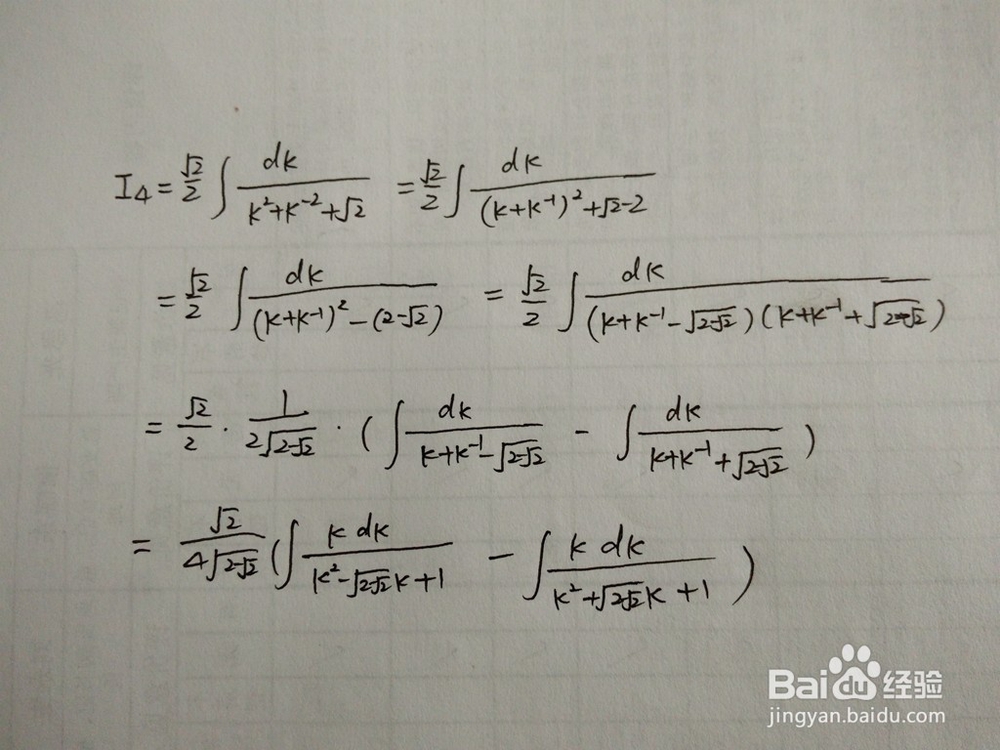 I₄ = √2/2 ∫ dk/(k²+k⁻²+√2) = √2/2 ∫ dk/((k+k⁻¹)²+√2-2)
= √2/2 ∫ dk/((k+k⁻¹)²-(2-√2)) = √2/2 ∫ dk/((k+k⁻¹-√(2-√2))(k+k⁻¹+√(2-√2)))
= √2/2 · 1/(2√(2-√2)) · (∫ dk/(k+k⁻¹-√(2-√2)) - ∫ dk/(k+k⁻¹+√(2-√2)))
= √2/(4√(2-√2)) (∫ k dk/(k²-√(2-√2)k+1) - ∫ k dk/(k²+√(2-√2)k+1))
Baidu经验
jingyan.baidu.com